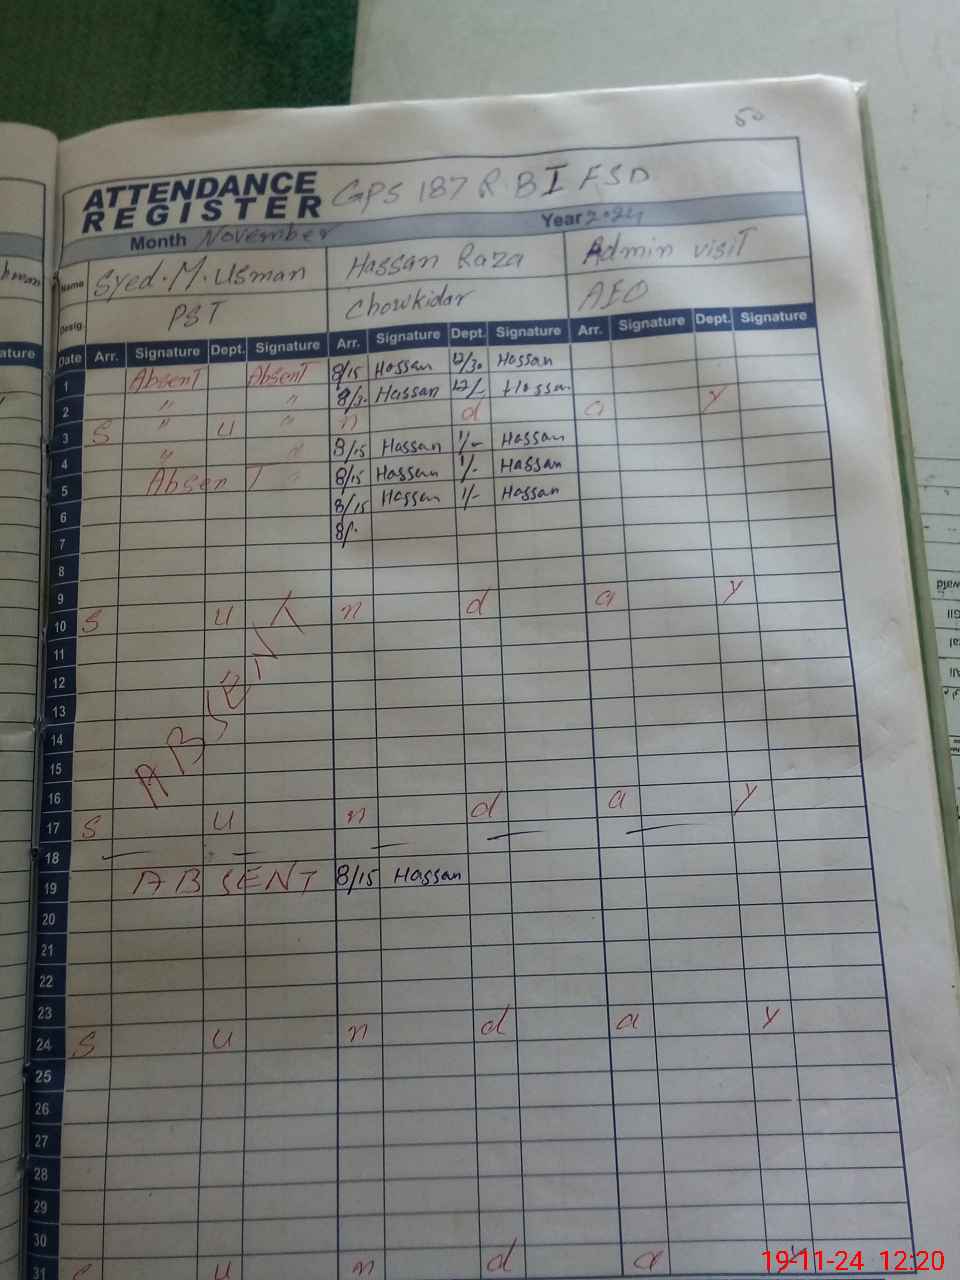 50
ATTENDANCE REGISTER GPS 187 R B I FSD
Month November Year 2024
Name Syed.M.Usman Hassan Raza Admin visit
Desig. PST Chowkidar AEO
Date Arr. Signature Dept. Signature Arr. Signature Dept. Signature Arr. Signature Dept. Signature
1 Absent Absent 8/15 Hassan 12/30 Hassan
2 " " Hassan Hassan
3 S " u " n d a y
4 " " 8/15 Hassan 1/- Hassan
5 Absent " 8/15 Hassan 1/- Hassan
6 8/15 Hassan 1/- Hassan
7 8/
8
9
10 S u n d a y
11
12
13
14
ABSENT
15
16
17 S u n d a y
18
19 ABSENT 8/15 Hassan
20
21
22
23
24 S u n d a y
25
26
27
28
29
30
31 S u n d a y
19-11-24 12:20